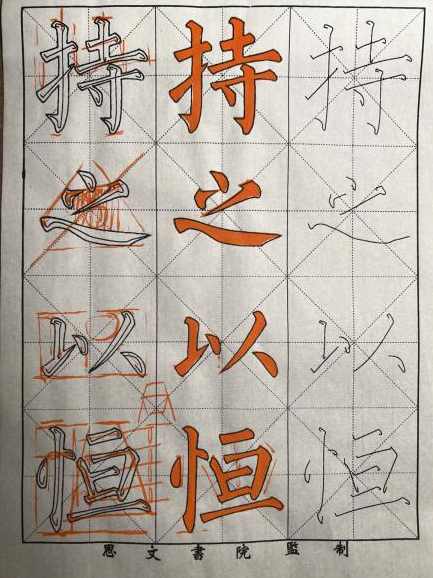 持 持 持
之 之 之
以 以 以
恒 恒 恒
思文書院監制